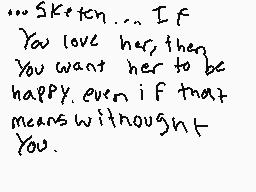 ...Sketch... If
You love her, then
You want her to be
happy. even if that
means withought
You.